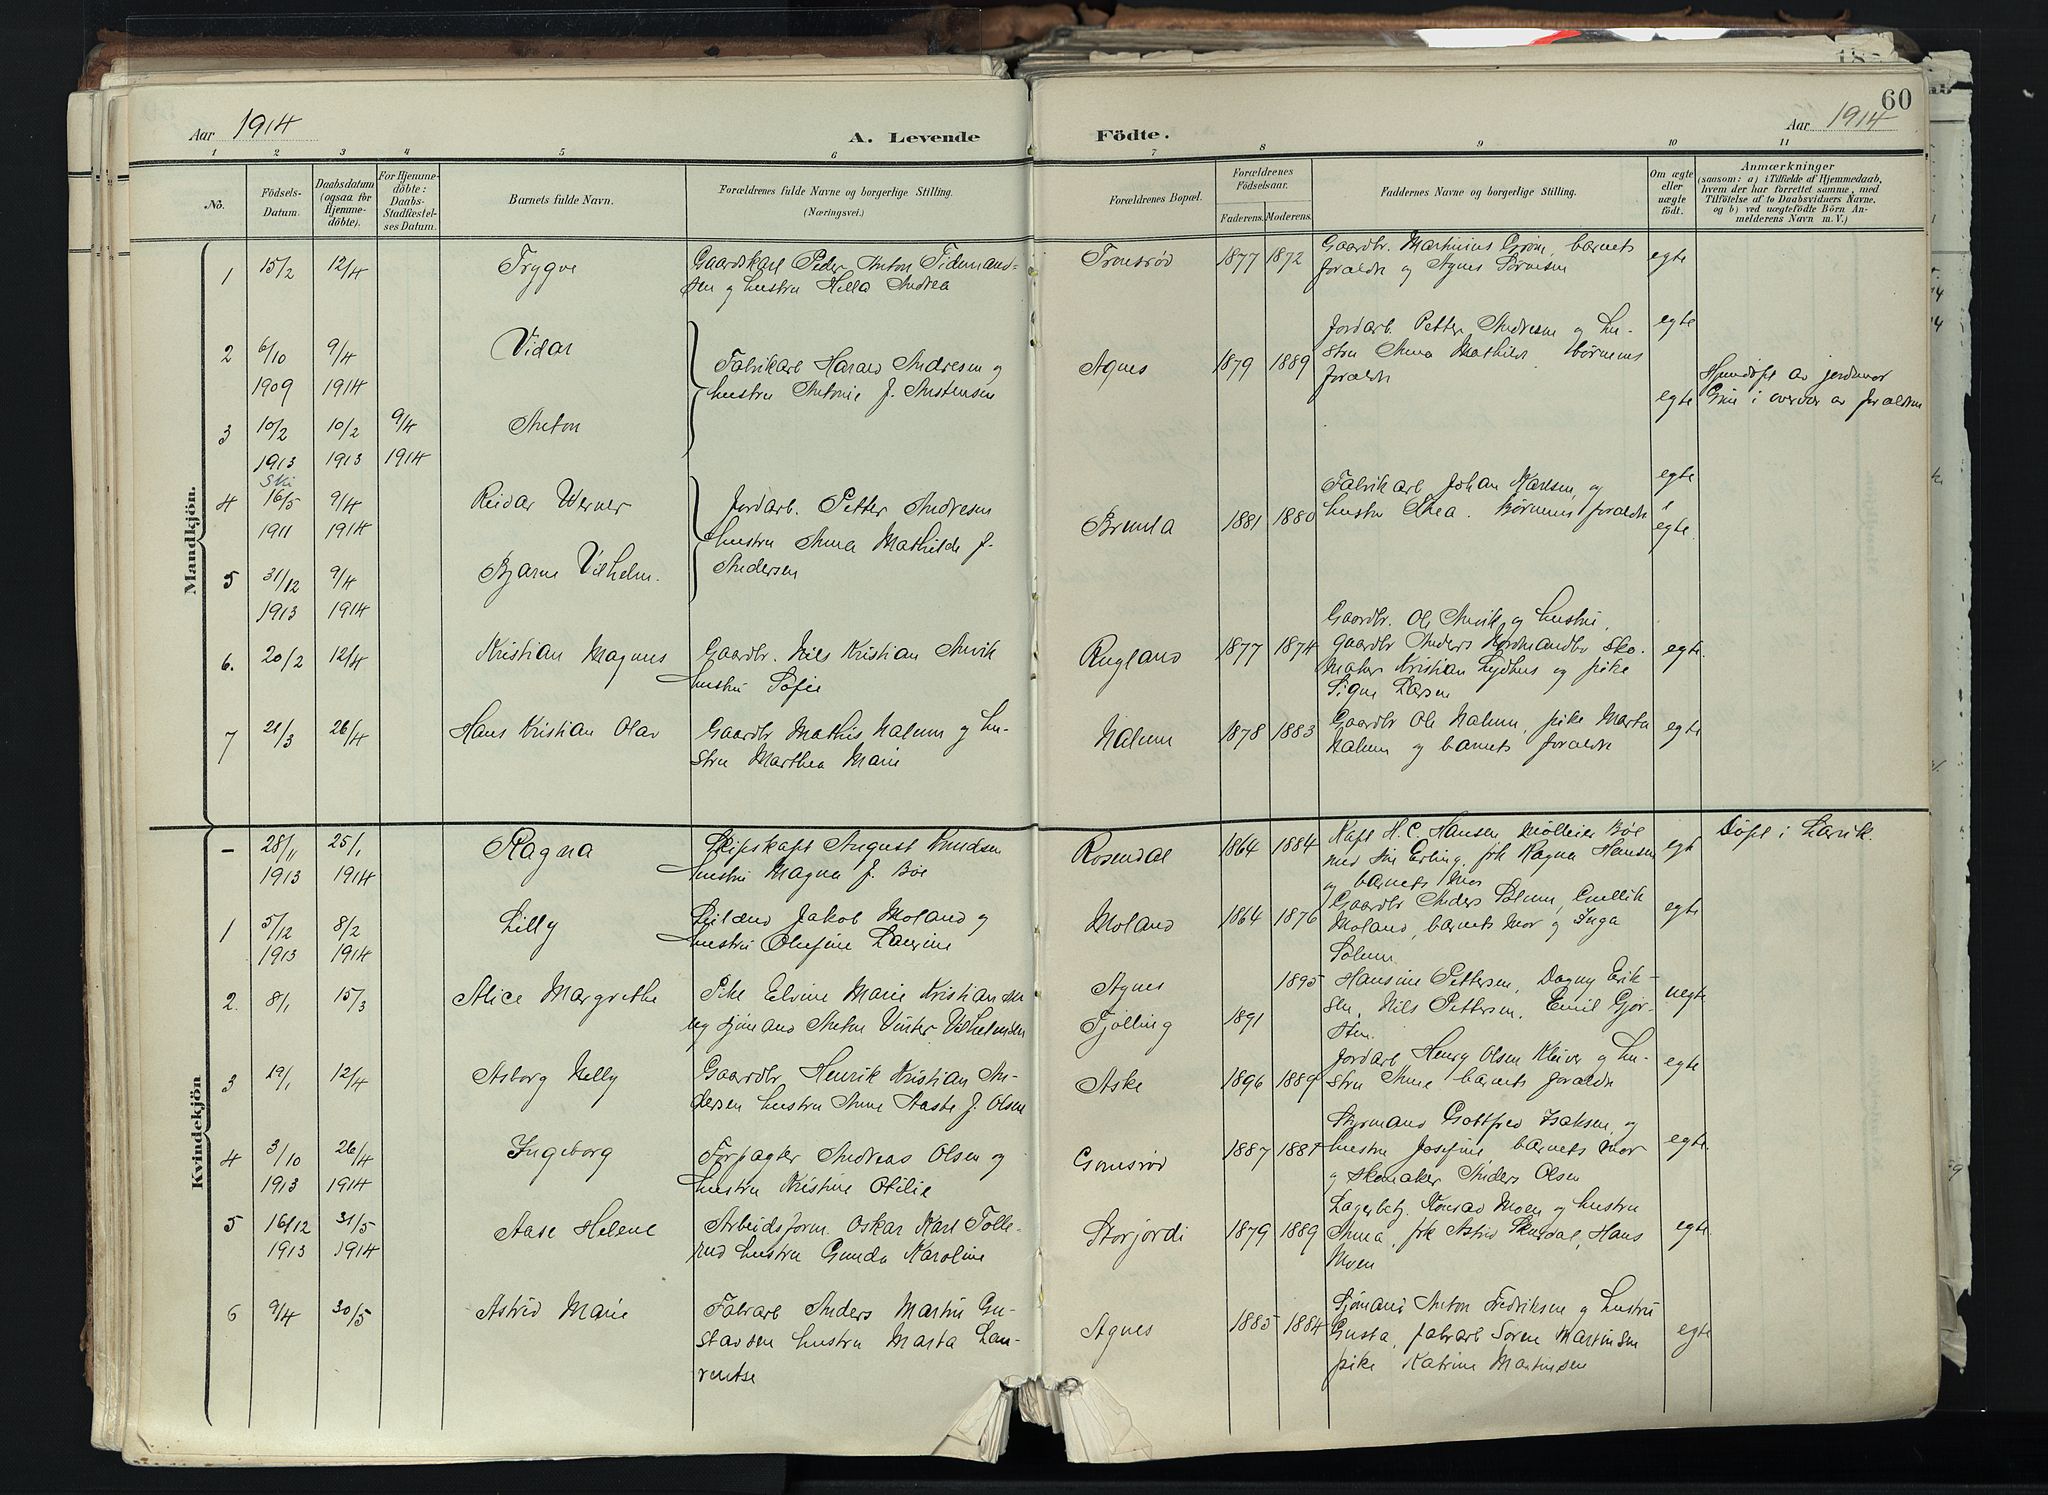 60
Aar 1914 A. Levende Födte. Aar 1914
1 2 3 4 5 6 7 8 9 10 11
No.
Födsels-
Datum.
Daabsdatum
(ogsaa for
Hjemme-
döbte).
For Hjemme-
döbte:
Daabs-
Stadfæstel-
ses Datum.
Barnets fulde Navn.
Forældrenes fulde Navne og borgerlige Stilling.
(Næringsvei.)
Forældrenes Bopæl.
Forældrenes
Födselsaar.
Faderens. Moderens.
Faddernes Navne og borgerlige Stilling.
Om ægte
eller
uægte
födt.
Anmærkninger
(saasom: a) i Tilfælde af Hjemmedaab,
hvem der har forrettet samme, med
Tilföielse af to Daabsvidners Navne,
og b) ved uægtefödte Börn An-
melderens Navn m. V.)
Mandkjön.
1 15/2 12/4 Trygve
Gaardskarl Peder Anton Tidemand-
sen og hustru Hilla Andrea
1877 1872
Gaardbr. Martinius Grøn, barnets
foraldre og Agnes Sørensen
egte
2 6/10 9/4 Vidar
1909 1914
Fabrikarb Harald Andresen og
hustru Antonie f. Austensen
Agnes 1879 1889
Jordarb. Petter Andresen og hu-
stru Anna Mathilde børnenes
foraldre
egte
3 10/2 10/2 9/4 Anton
1913 1913 1914
egte
Hjemdøpt av jordmor
Grøn i overvær av foraldrene
Ski
4 16/5 9/4 Reidar Werner
1911 1914
Jordarb. Petter Andresen
hustru Anna Mathilde f.
Andersen
Brunla 1881 1880
Fabrikarb Johan Karlsen og
hustru Thea. Børnenes foraldre
egte
5 31/12 9/4 Bjarne Vilhelm.
1913 1914
egte
6. 20/2 12/4 Kristian Magnus
Gaardbr. Nils Kristian Anvik
hustru Sofie
Rugland 1877 1874
Gaardbr. Ole Anvik og hustru,
gaardbr Anders Nordmandbr sko-
maker Kristian Lydhus og pike
Signe Larsen
egte
7 21/3 26/4 Hans Kristian Olav
Gaardbr Mathis Nalum og hu-
stru Marthea Marie
Nalum 1878 1883
Gaardbr Ole Nalum, pike Marta
Nalum og barnets foraldre
egte
Kvindekjön
- 28/11 25/1 Ragna
1913 1914
Skipskapt August Knudsen
hustru Magna f. Bøe
Rosendal 1864 1884
Kapt H.C. Hansen, Møllerier Bøe
med sin Erling. frk Ragna Hansen
og barnets Mor
egte
Døpt i Larvik.
1 5/12 8/2 Lilly
1913 1914
Leilænd Jakob Moland og
hustru Olufine Laurine
Moland 1864 1876
Gaardbr Anders Solum,
Moland, barnets Mor og Inga
Solum
egte
2. 8/1 15/3 Alice Margrethe
Pike Elvine Marie Kristiansen
og sjømand Anton Vinter Vilhelmsen
Agnes 1895
Tjølling 1891
Hansine Pettersen, Dagny Erik-
sen, Nils Pettersen, Emil Gjer-
sten.
uegte
3 19/1 12/4 Asborg Nelly
Gaardbr Henrik Kristian An-
dersen hustru Anne Aaste f. Olsen
Aske 1896 1889
Jordarb Henry Olsen Kleiver og hu-
stru Anne barnets foraldre
egte
4 3/10 26/4 Ingeborg
1913 1914
Forpagter Andreas Olsen og
hustru Kristine Otilie
Gonsrød 1887 1887
Styrmand Gottfred Isaksen, og
hustru Josefine barnets mor
og skomaker Anders Olsen
egte
5 16/12 31/5 Aase Helene
1913 1914
Arbeidsform. Oskar Karl Tolle-
rud hustru Gunda Karoline
Storjordi 1879 1889
Lagerbetj. Konrad Moen og hustru
Anna, frk Astrid Skuedal, Hans
Moen
egte
6 9/4 30/5 Astrid Marie
Fabrarb Anders Martin Gu-
stavsen hustru Marta Lau-
rentse
Agnes 1885 1884
Sjømand Anton Fredriksen og hustru
Gusta, fabrarb Søren Martinsen
pike Katrine Martinsen
egte